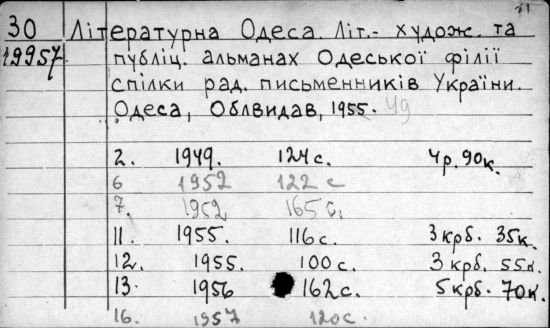 30 Літературна Одеса. Літ.- худож. та
19957 публіц. альманах Одеської філії
спілки рад. письменників України.
Одеса, Облвидав, 1955.
2. 1949. 124 с. 4р. 90к.
6 1952 122 с
7. 1952 165 с.
11. 1955. 116 с. 3 крб. 35к.
12. 1955. 100 с. 3 крб. 55к.
13. 1956 162 с. 5 крб. 70к.
16. 1957 120 с.